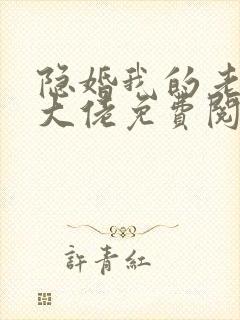 隐婚我的老
大佬免費閱
許青紅